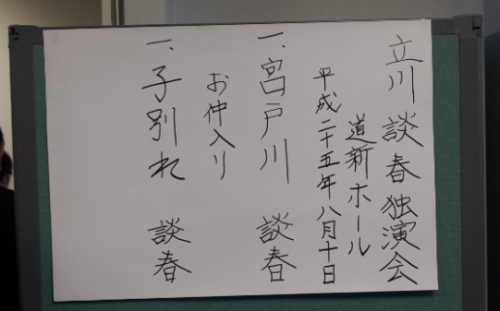 立川談春独演会
道新ホール
平成二十五年八月十日
一、宮戸川 談春
お仲入り
一、子別れ 談春